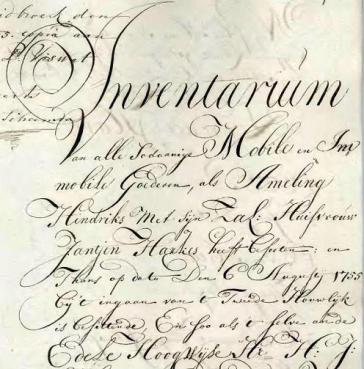 5. copia aan
Inventarium
Van alle Sodaanige Mobile en Im
mobile Goederen, als Ameling
Hindriks Met sijn Zal: Huisvrouw
Jantjen Haukes heeft beseten: en
Thans op dato Den 6 Augustij 1755
bij't ingaan van 't Tweede Houwlijk
is besittende, En soo als 't selve aan de
Edele Hoogwijse Hr: H: J: